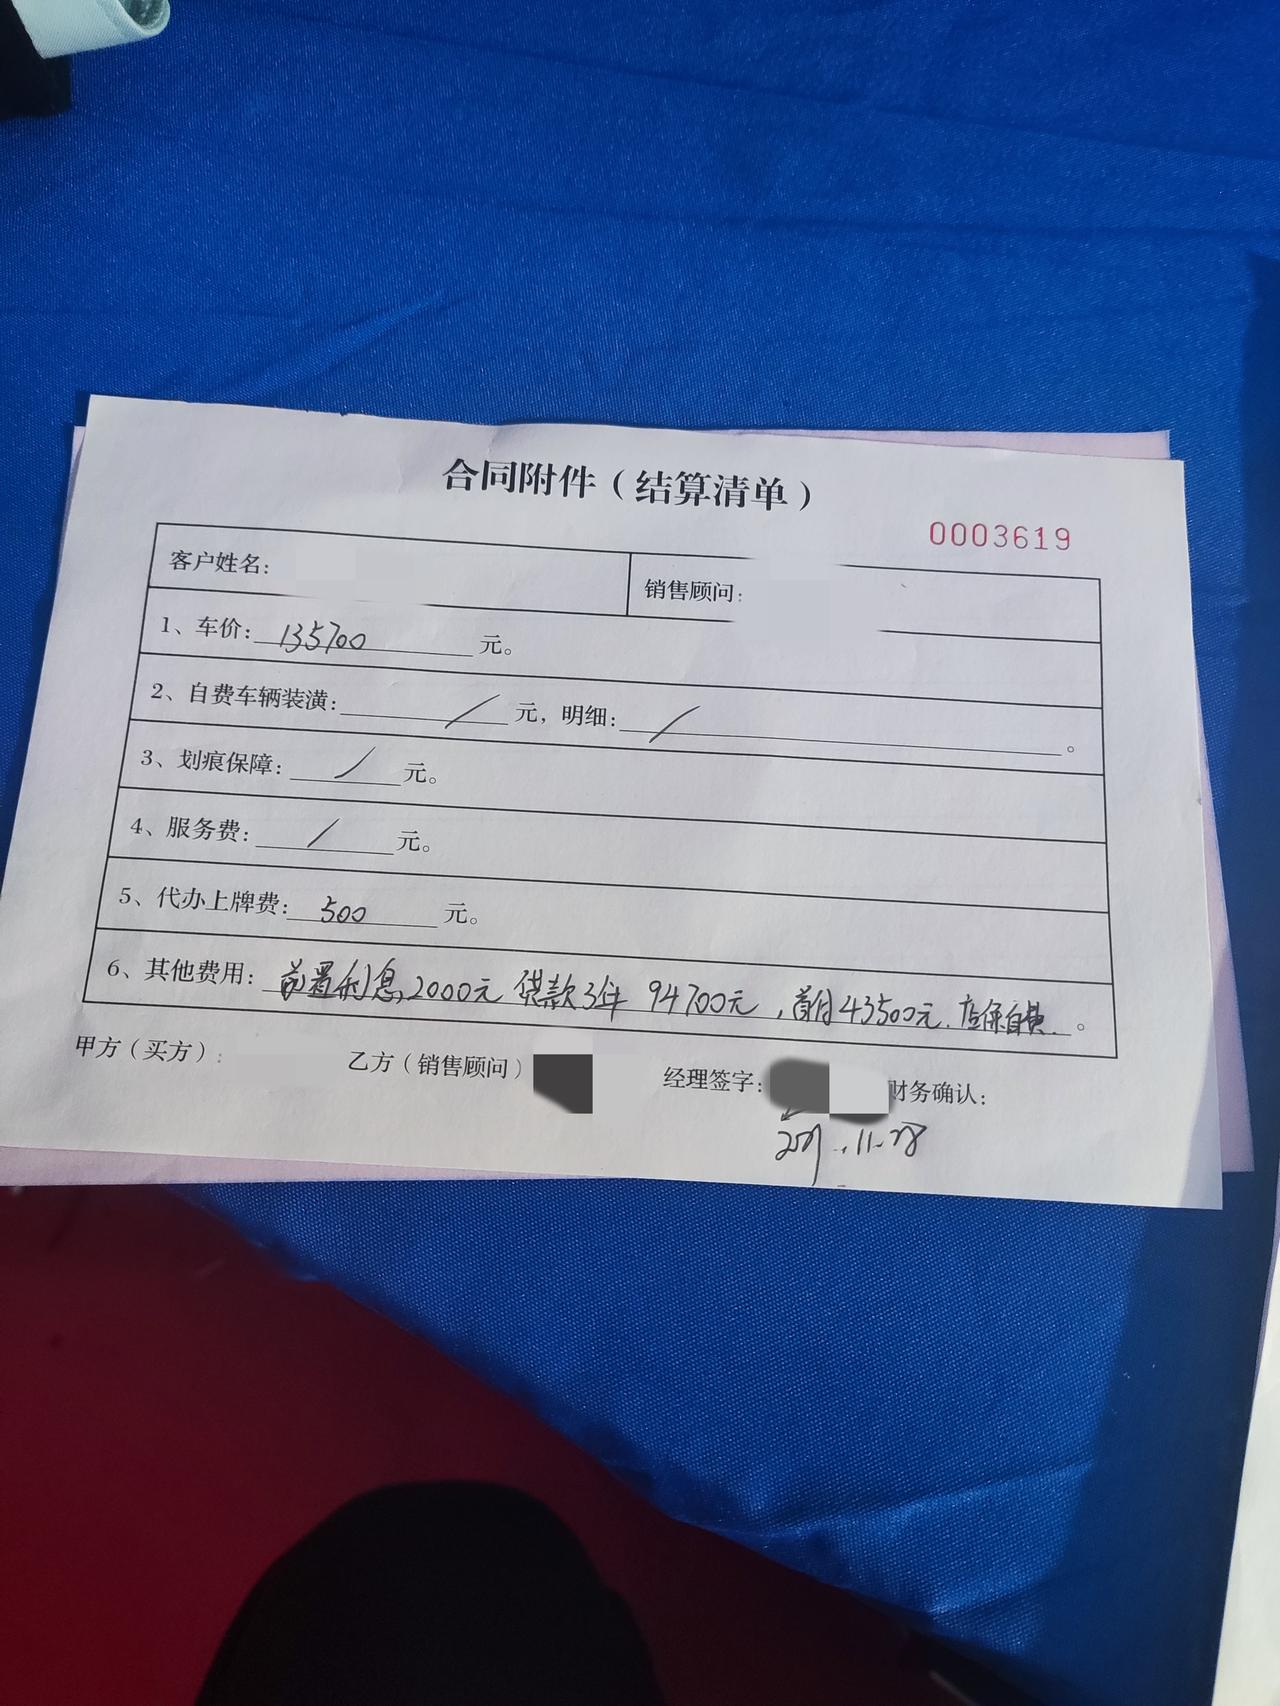 合同附件（结算清单）
0003619
客户姓名: 销售顾问:
1、车价: 135700 元。
2、自费车辆装潢: / 元，明细: / 。
3、划痕保障: / 元。
4、服务费: / 元。
5、代办上牌费: 500 元。
6、其他费用: 前置利息2000元 贷款3年 94700元，首付43500元. 店保自费 。
甲方（买方）: 乙方（销售顾问） 经理签字: 财务确认:
11.28